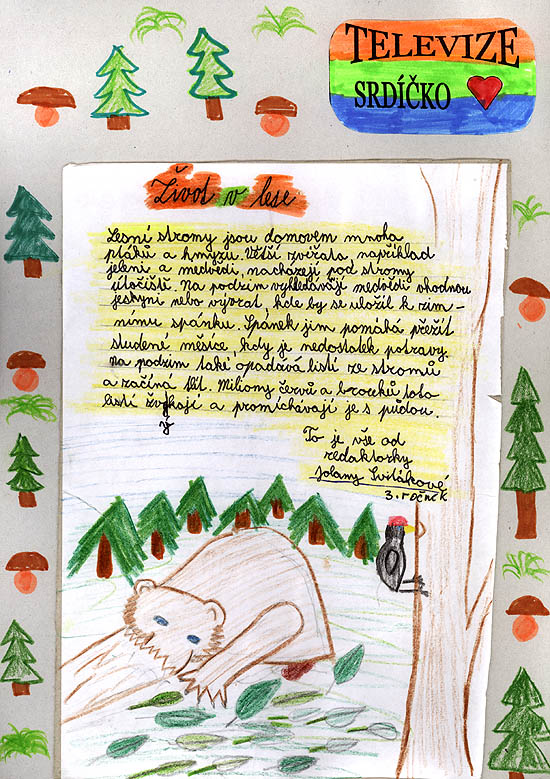 TELEVIZE
SRDÍČKO
Život v lese
Lesní stromy jsou domovem mnoha
ptáků a hmyzu. Větší zvířata, například
jeleni a medvědi, nacházejí pod stromy
útočiště. Na podzim vyhledávají medvědi vhodnou
jeskyni nebo vývrat, kde by se uložil k zim-
nímu spánku. Spánek jim pomáhá přežít
studené měsíce, kdy je nedostatek potravy.
Na podzim také opadává listí ze stromů
a začíná tlít. Miliony červů a broučků toto
listí žvýkají a promíchávají je s půdou.
To je vše od
redaktorky
Jolany Svitákové
3. ročník